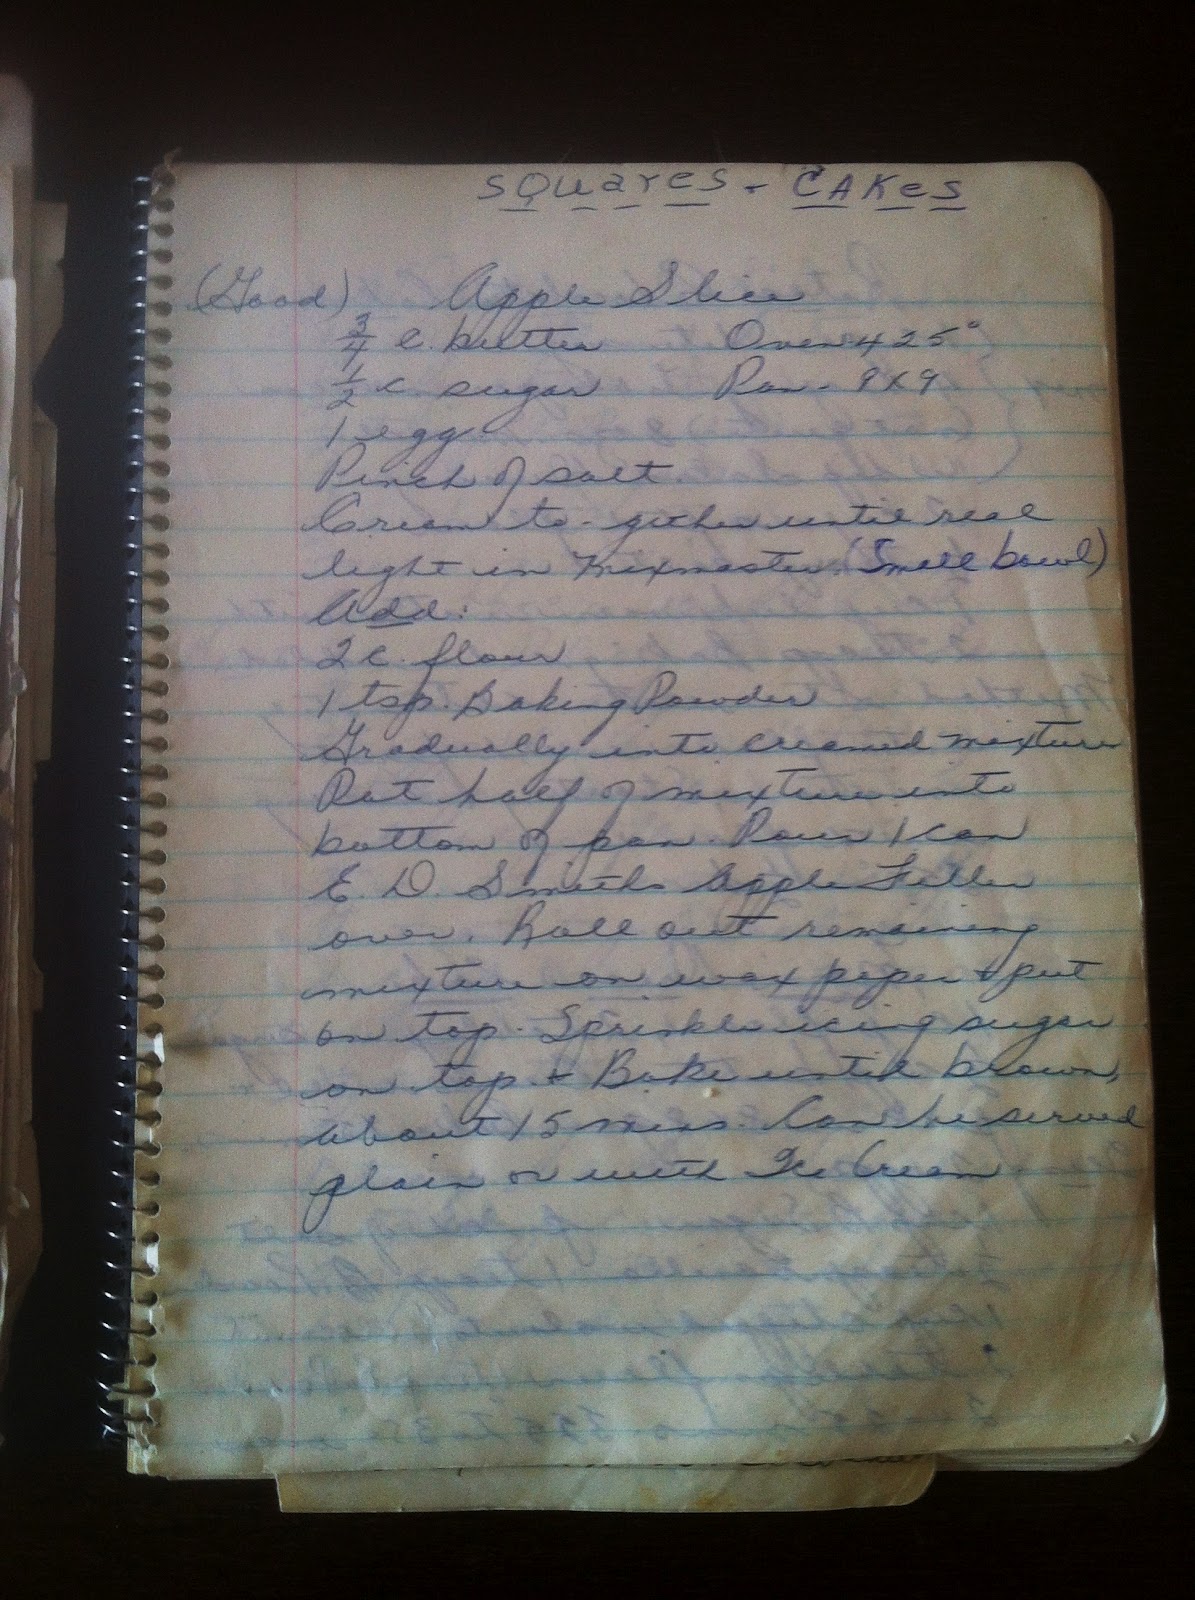 SQUARES + CAKES
(Good) Apple Slice
3/4 c. butter Oven 425°
1/2 c. sugar Pan - 9x9
1 egg
Pinch of salt.
Cream to-gether until real
light in Mixmaster. (Small bowl)
Add:
2 c. flour
1 tsp. Baking Powder
Gradually into creamed mixture
Pat half of mixture into
bottom of pan. Pour 1 can
E. D. Smiths Apple Filler
over. Roll out remaining
mixture on wax paper + put
on top. Sprinkle icing sugar
on top + Bake until brown,
about 15 mins. Can be served
plain or with Ice Cream